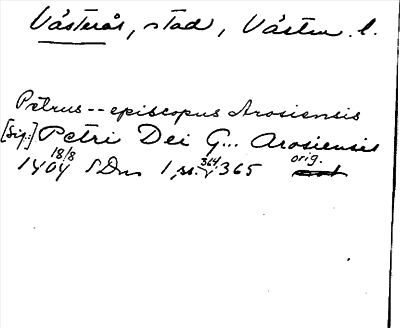 Västerås, stad, Västm. l.
Petrus -- episcopus Arosiensis
[Sig:] Petri Dei G... Arosiensis
1404 18/8 SDns 1, ss. 364, 365 orig.